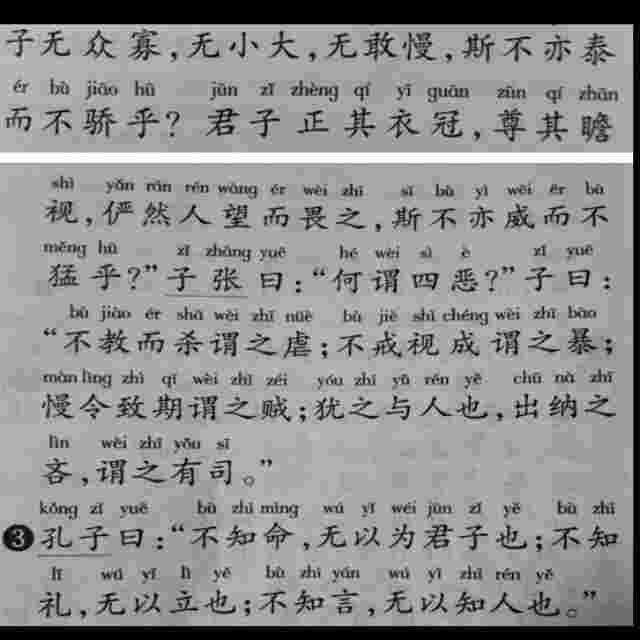 子无众寡，无小大，无敢慢，斯不亦泰
ér bù jiāo hū jūn zǐ zhèng qí yī guān zūn qí zhān
而不骄乎？君子正其衣冠，尊其瞻
shì yǎn rán rén wàng ér wèi zhī sī bù yì wēi ér bù
视，俨然人望而畏之，斯不亦威而不
měng hū zǐ zhāng yuē hé wèi sì è zǐ yuē
猛乎？”子张曰：“何谓四恶？”子曰：
bù jiào ér shā wèi zhī nüè bù jiè shì chéng wèi zhī bào
“不教而杀谓之虐；不戒视成谓之暴；
màn lìng zhì qī wèi zhī zéi yóu zhī yǔ rén yě chū nà zhī
慢令致期谓之贼；犹之与人也，出纳之
lìn wèi zhī yǒu sī
吝，谓之有司。”
kǒng zǐ yuē bù zhī mìng wú yǐ wéi jūn zǐ yě bù zhī
③孔子曰：“不知命，无以为君子也；不知
lǐ wú yǐ lì yě bù zhī yán wú yǐ zhī rén yě
礼，无以立也；不知言，无以知人也。”